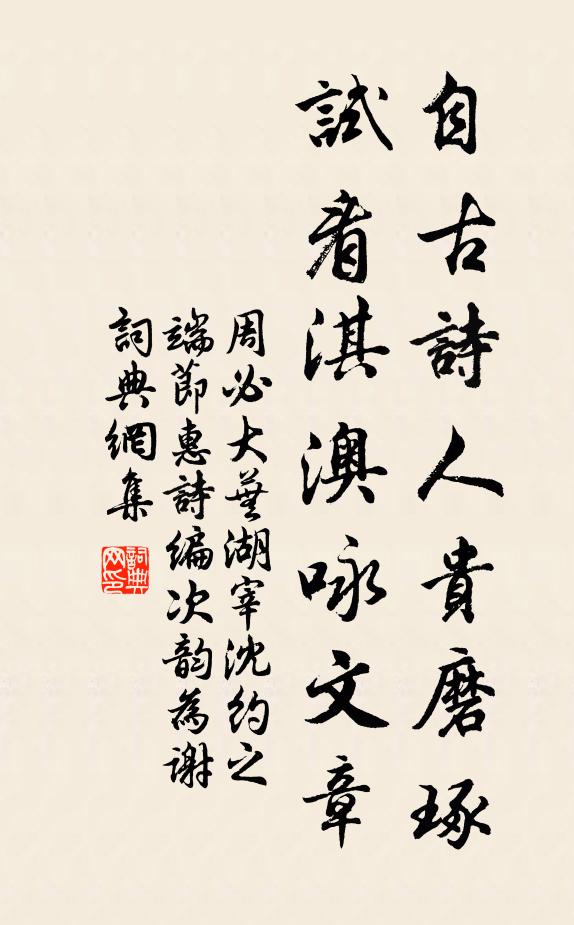 自古詩人貴磨琢
試看淇澳咏文章
周必大蕪湖宰沈約之
端節惠詩編次韵為謝
詞典網集
詞典网印